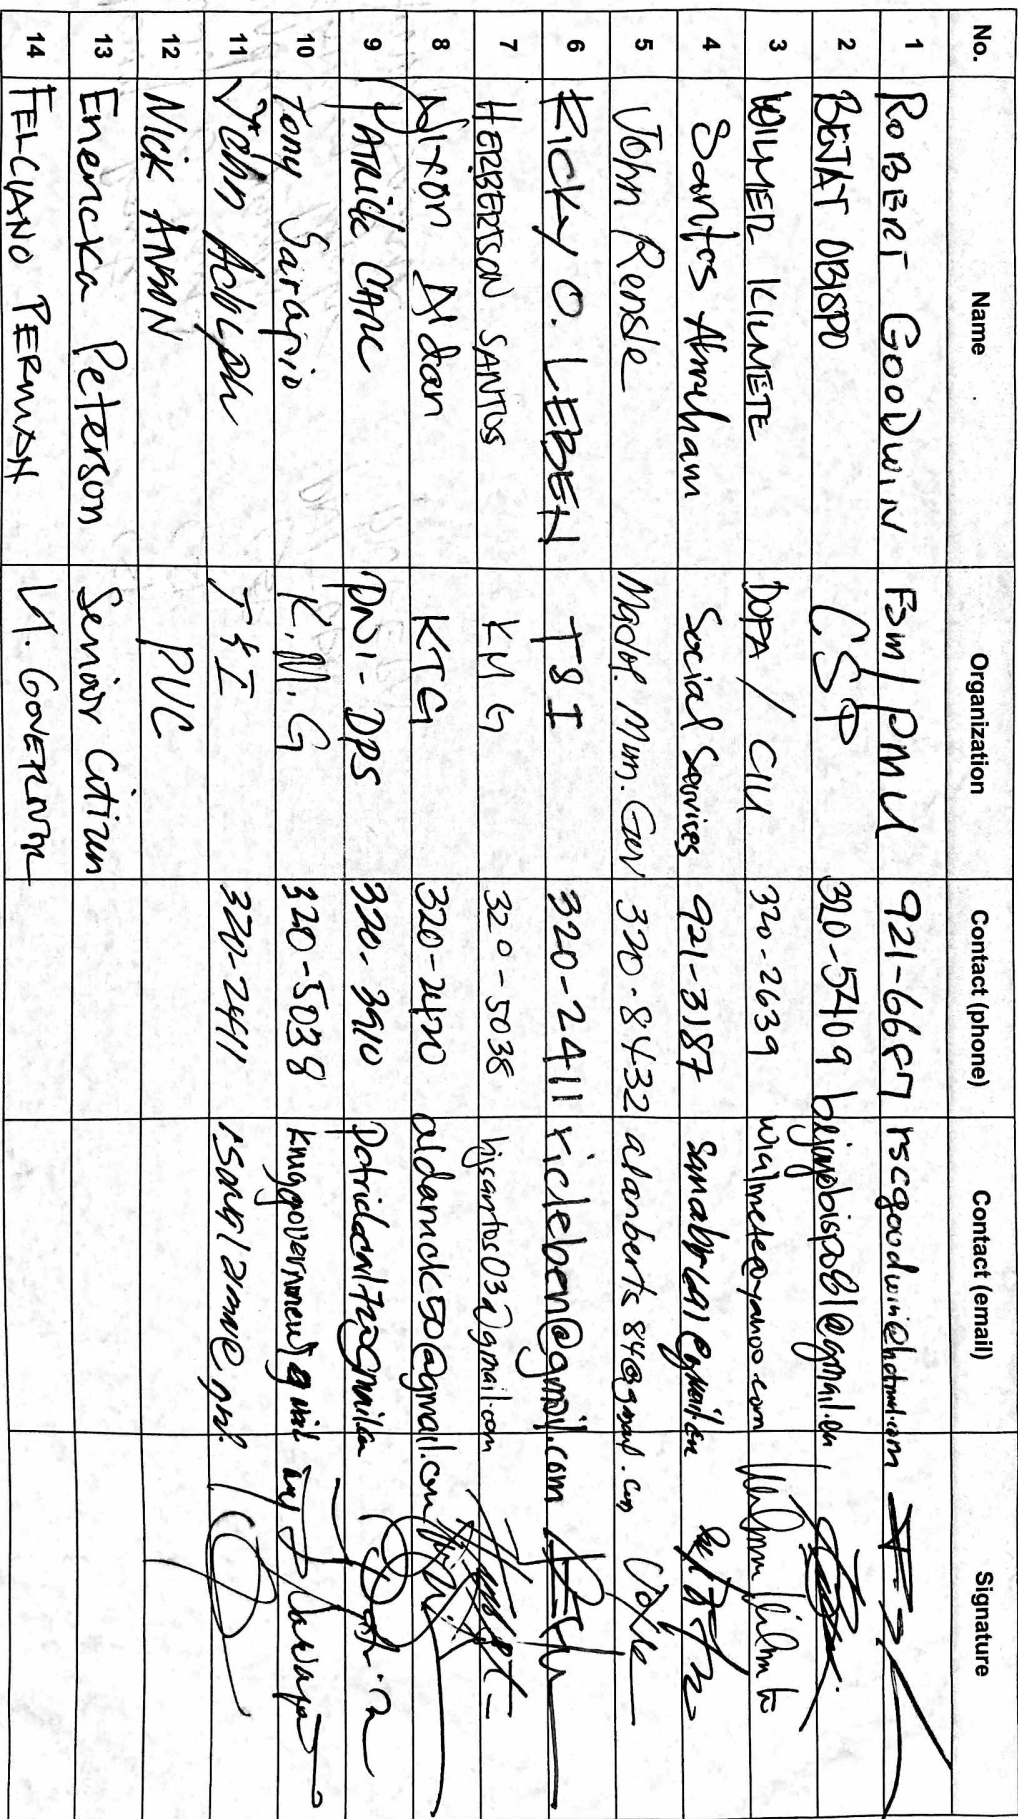 No. Name Organization Contact (phone) Contact (email) Signature
1 ROBERT GOODWIN BM/PMU 921-6667 rscgoodwin@hotmail.com
2 BENJAY OBISPO CSP 320-5409
3 WILMER KILMETE DOPA / CIU 320-2639 wialmete@yahoo.com
4 Santos Abraham Social Services 921-3187
5 John Rensle Madol. Mun. Gov 320-8432 alanberts84@gmail.com
6 Ricky O. LEBEN T&I 320-2411 ricleben@gmail.com
7 HERBERTSON SANTOS KMG 320-5038 hjsantos03@gmail.com
8 Nixon Aldan KTG 320-2420 aldanick50@gmail.com
9 PATRICK CARL PNI-DPS 320-3910
10 Tony Sarapio K.M.G 320-5038
11 John Adolph T&I 320-2411
12 NICK ANSON PUC
13 Enerika Peterson Senior Citizen
14 FELCIANO PERMAN Lt. GOVERNOR